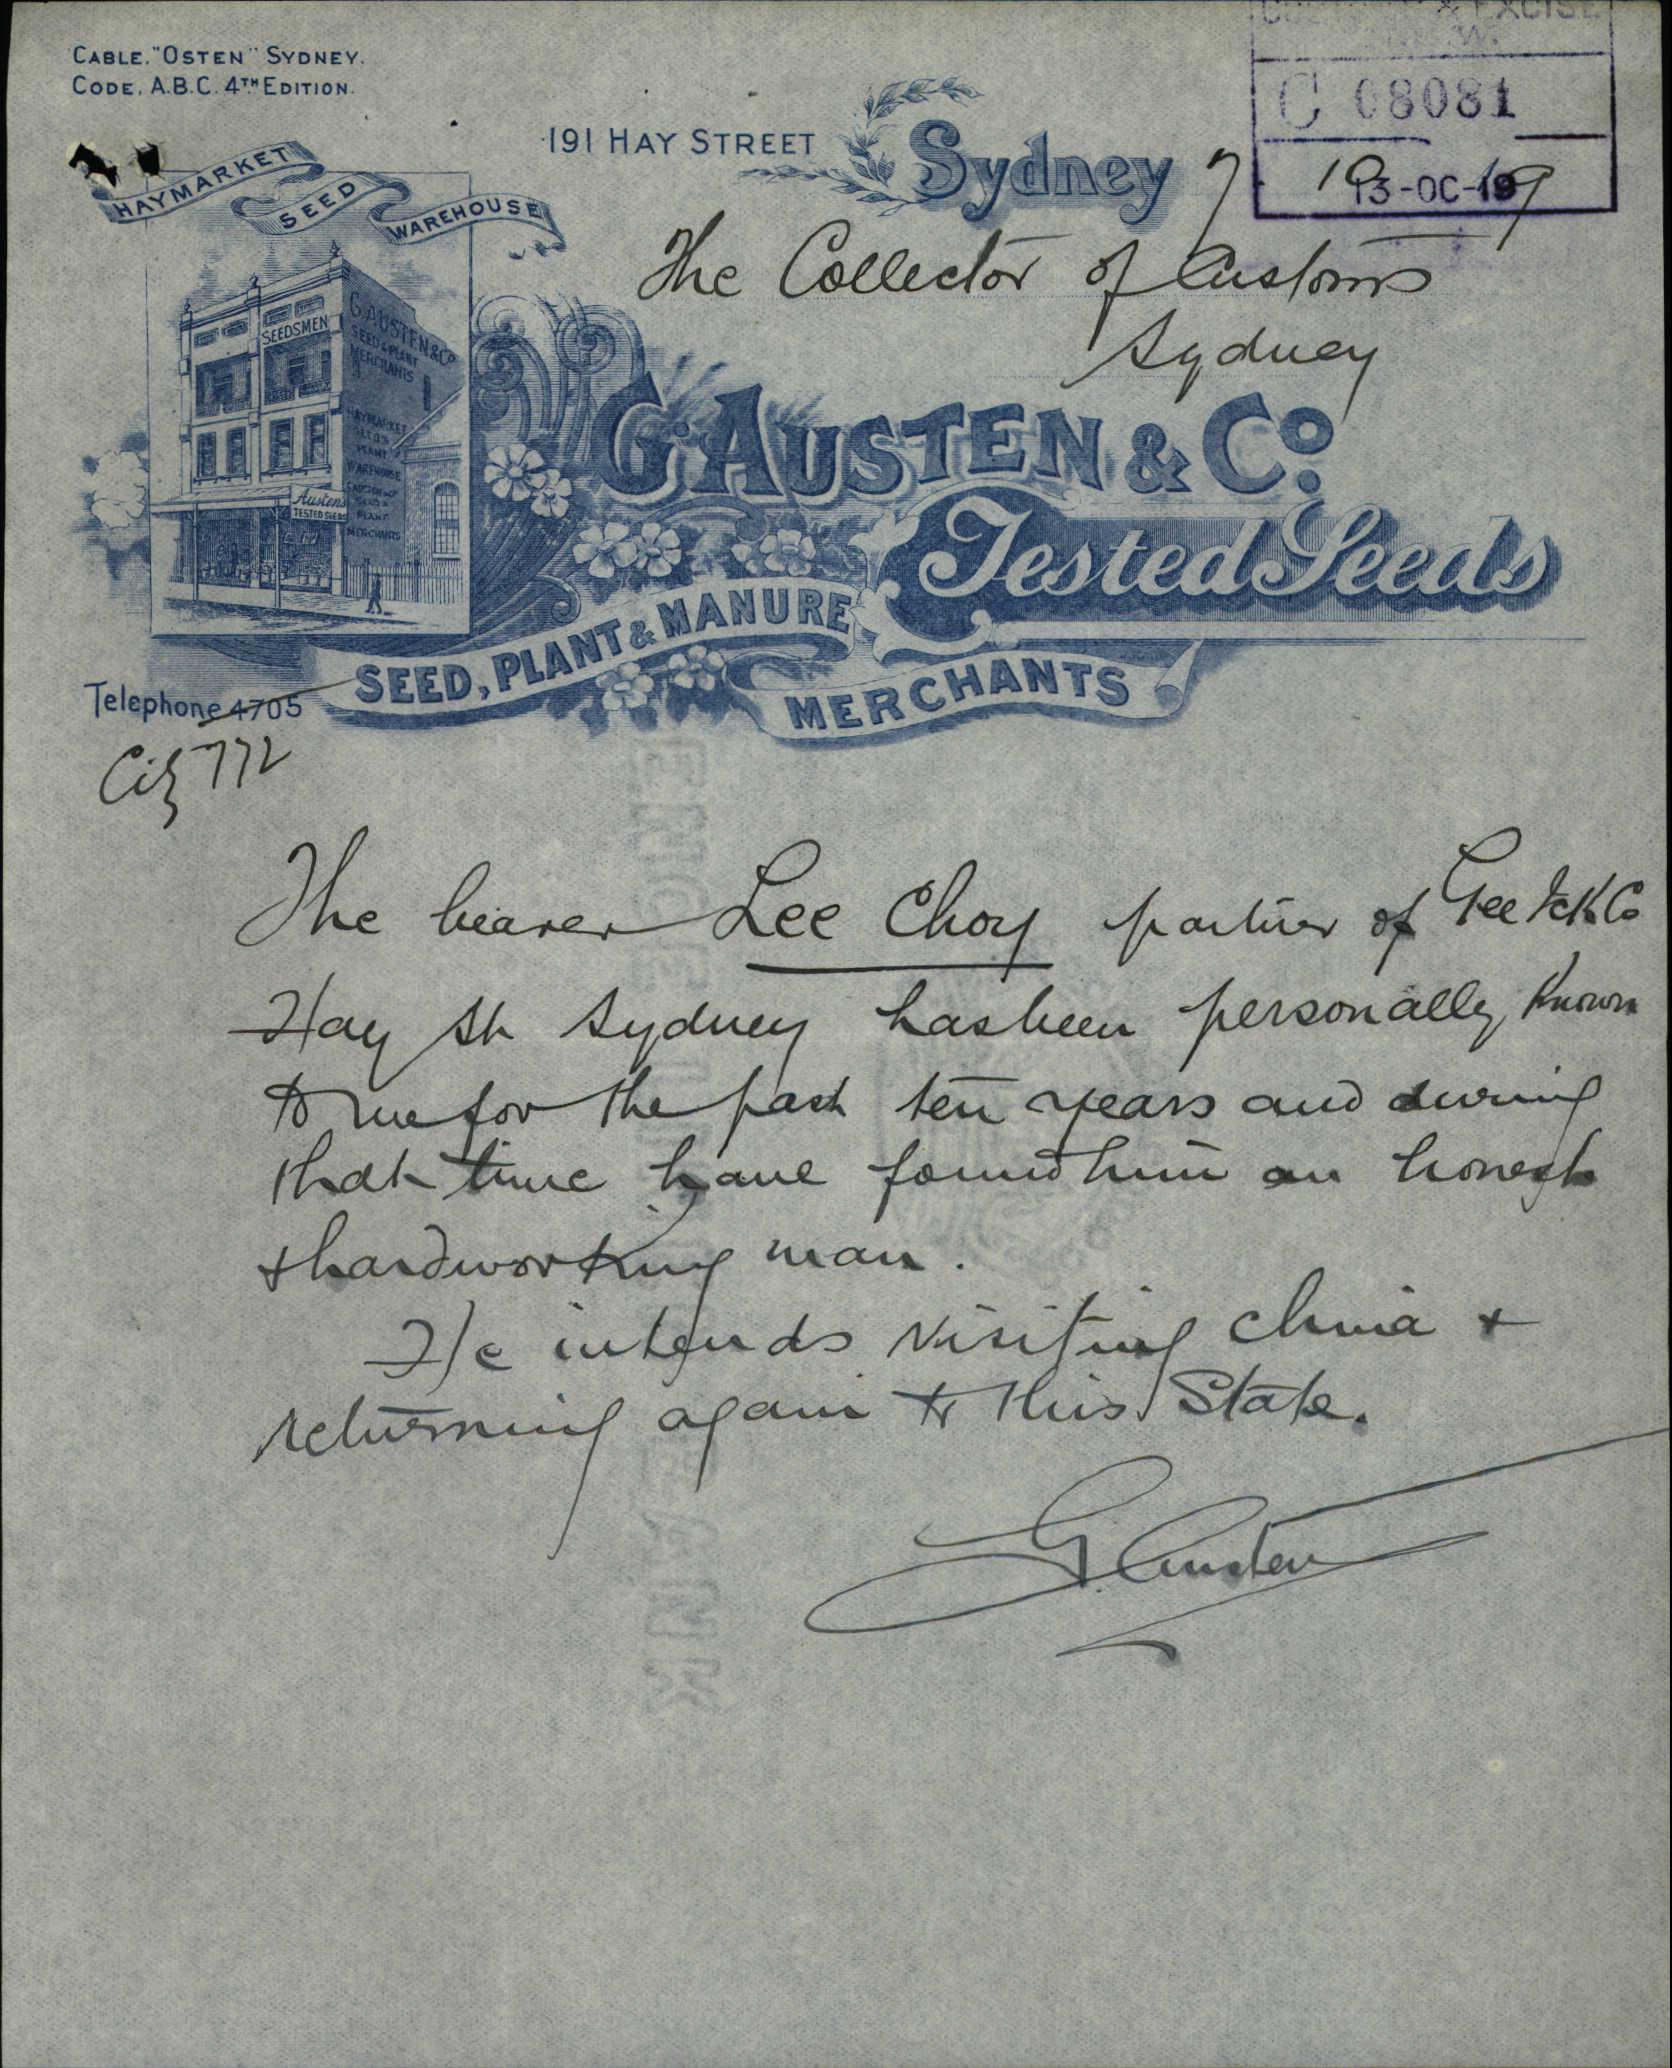 CABLE. "OSTEN" SYDNEY.
CODE. A.B.C. 4TH EDITION.
& EXCISE
C 08081
13-OC-19
191 HAY STREET Sydney 7 10 19
HAYMARKET SEED WAREHOUSE
The Collector of Customs
Sydney
SEEDSMEN
G. AUSTEN & CO
SEED & PLANT
MERCHANTS
HAYMARKET
SEED &
PLANT
WAREHOUSE
PLANT
MERCHANTS
Austens
TESTED SEEDS
G. AUSTEN & Co.
Tested Seeds
SEED, PLANT & MANURE
MERCHANTS
Telephone 4705
City 772
The bearer Lee Choy partner of Gee Ick Co
Hay St Sydney has been personally known
to me for the past ten years and during
that time have found him an honest
+ hardworking man.
He intends visiting China +
returning again to this State.
G. Austen